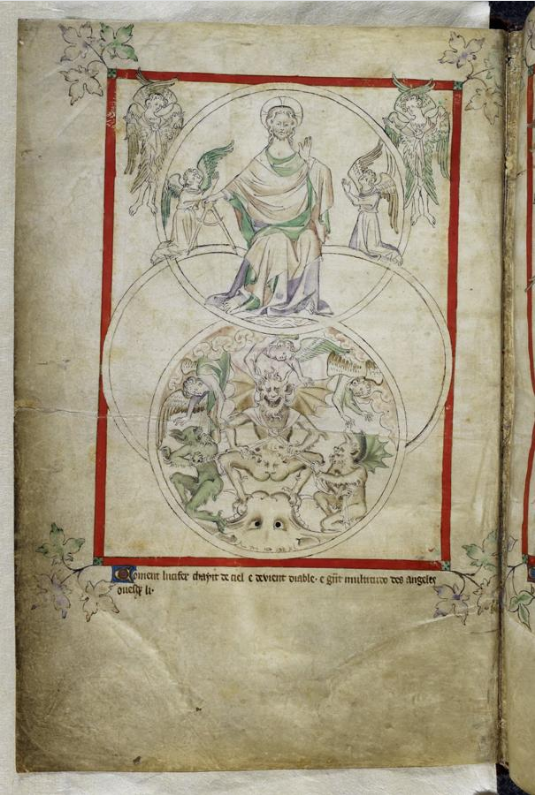 Coment lucifer chayit de ciel e devient diable· e g̃nt multitudo des angeles
ovesq̃ li·